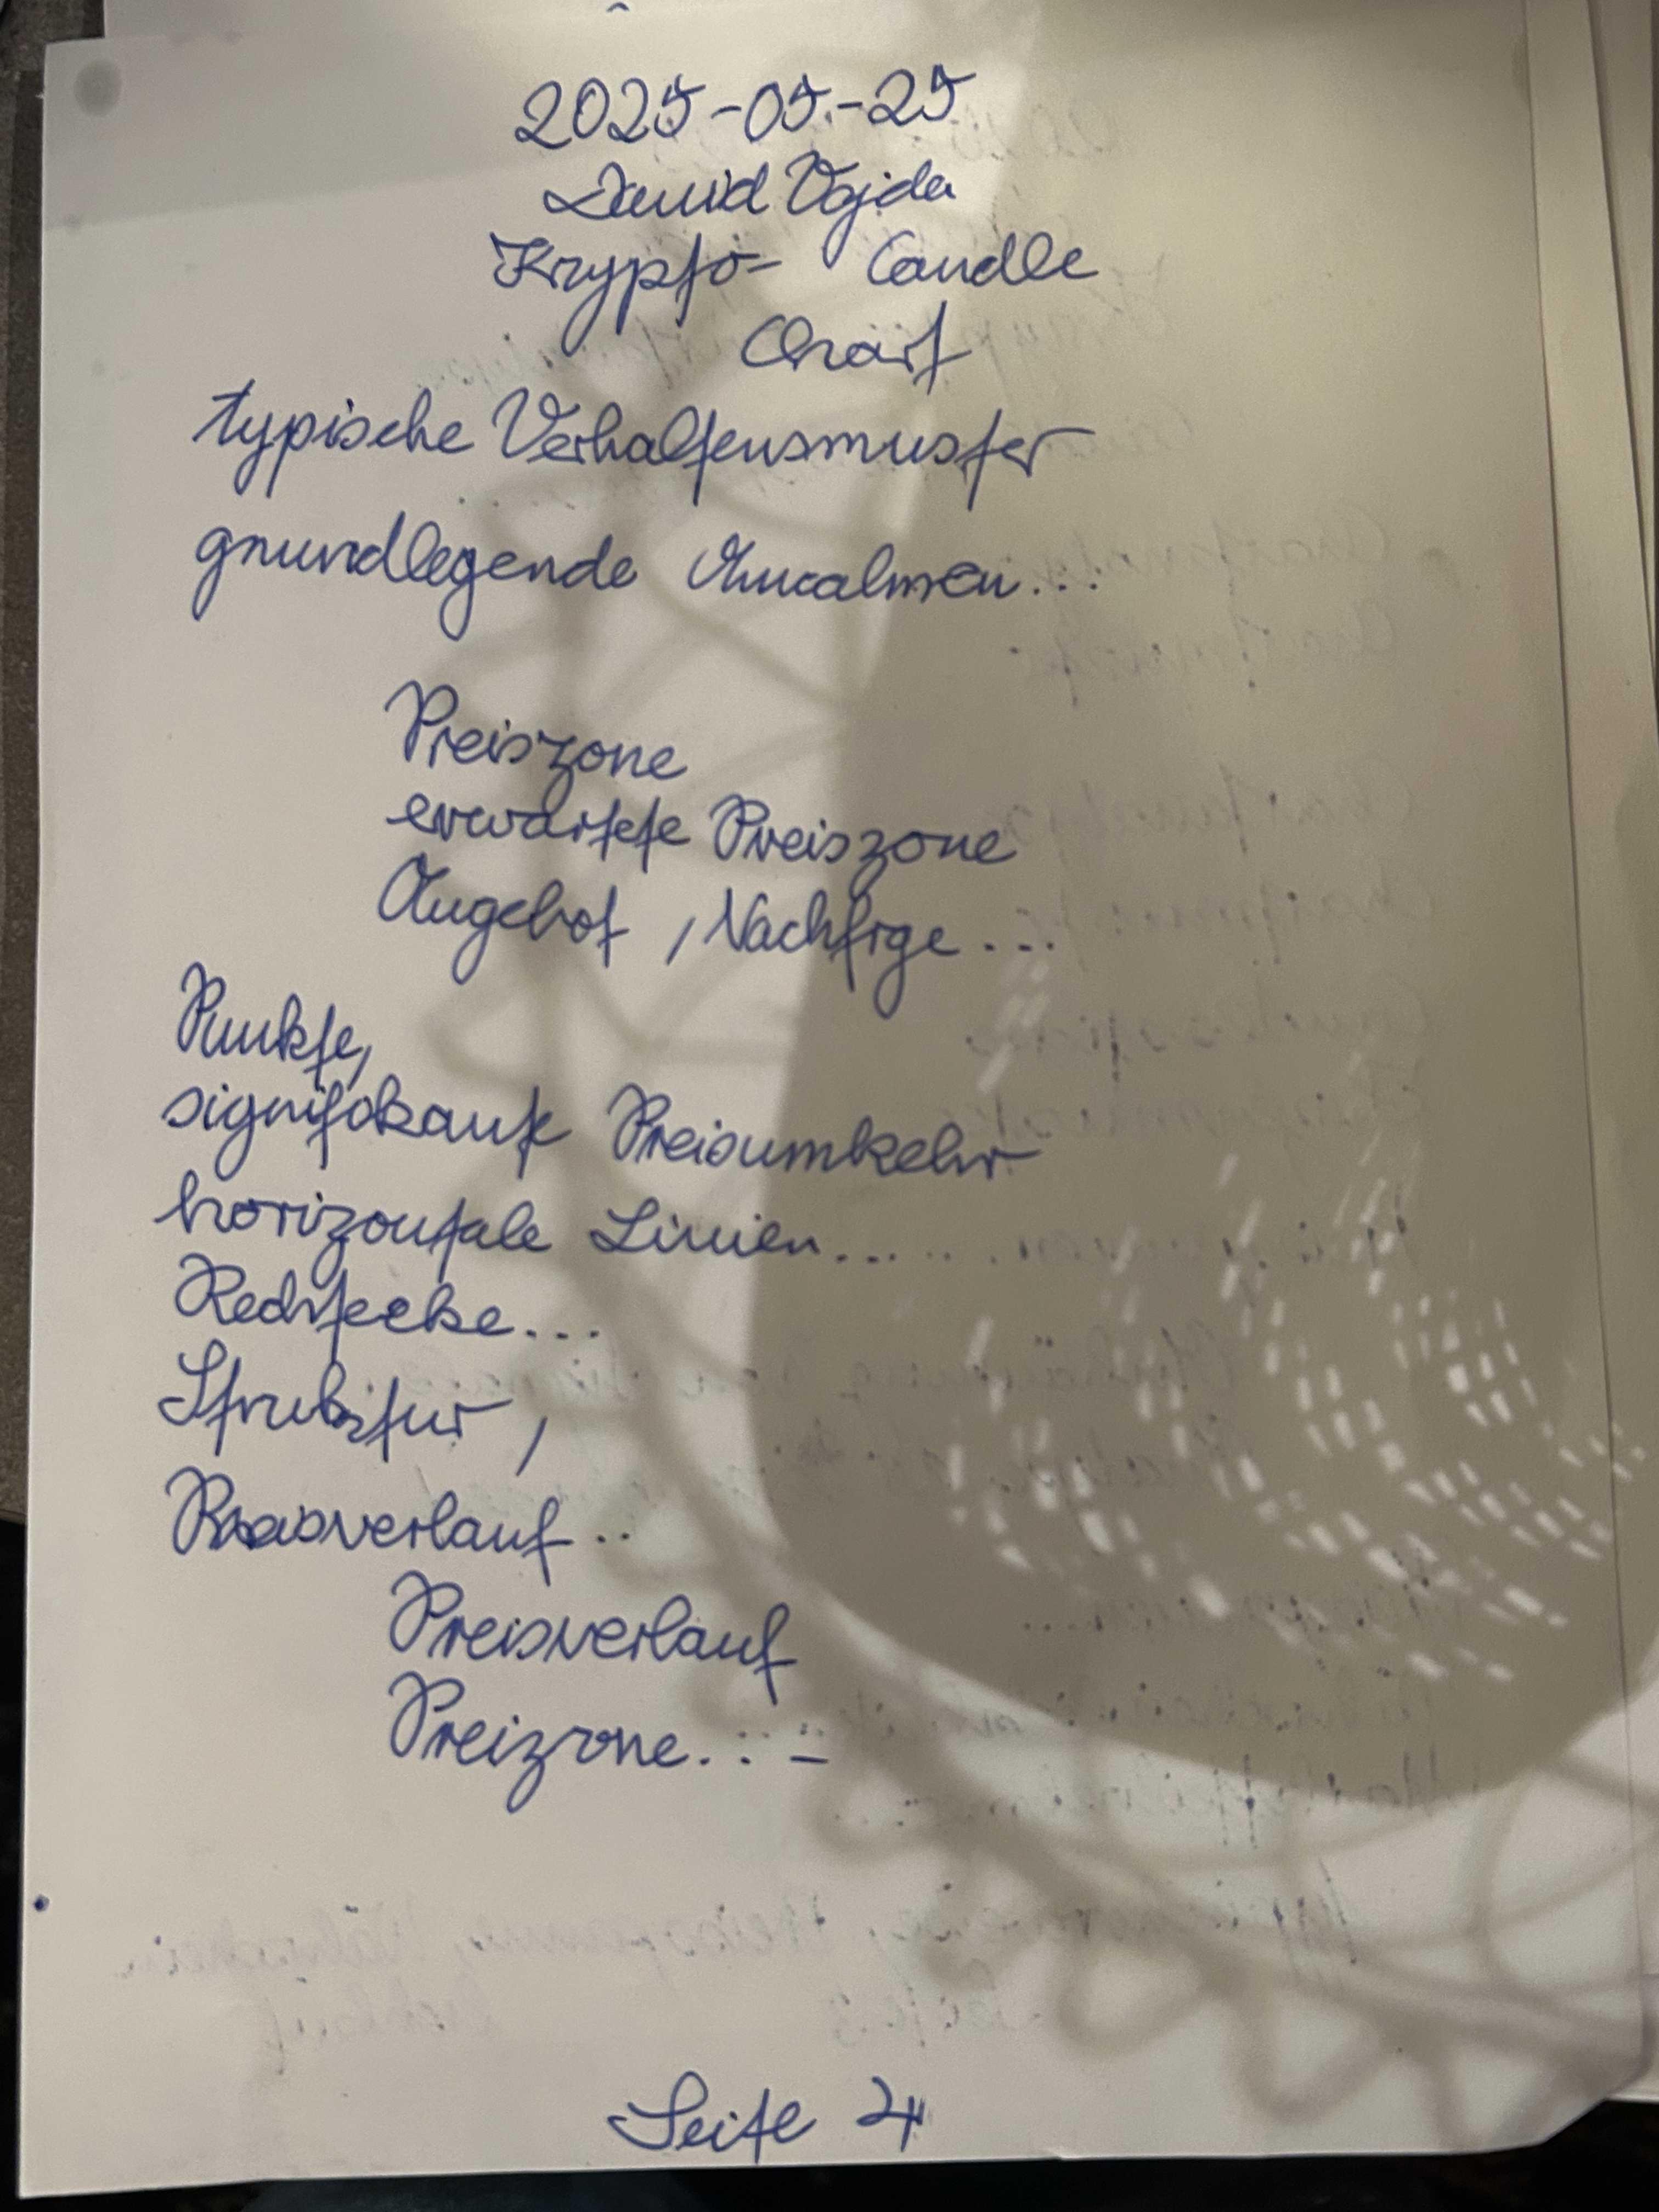 2025-05-25
David Vajda
Krypto- Candle
Chart
typische Verhaltensmuster
grundlegende Annahmen...
Preiszone
erwartete Preiszone
Angebot, Nachfrge...
Punkte,
signifikante Preisumkehr
horizontale Linien......
Rechtecke...
Struktur,
Preisverlauf..
Preisverlauf
Preizone...-
Seite 4